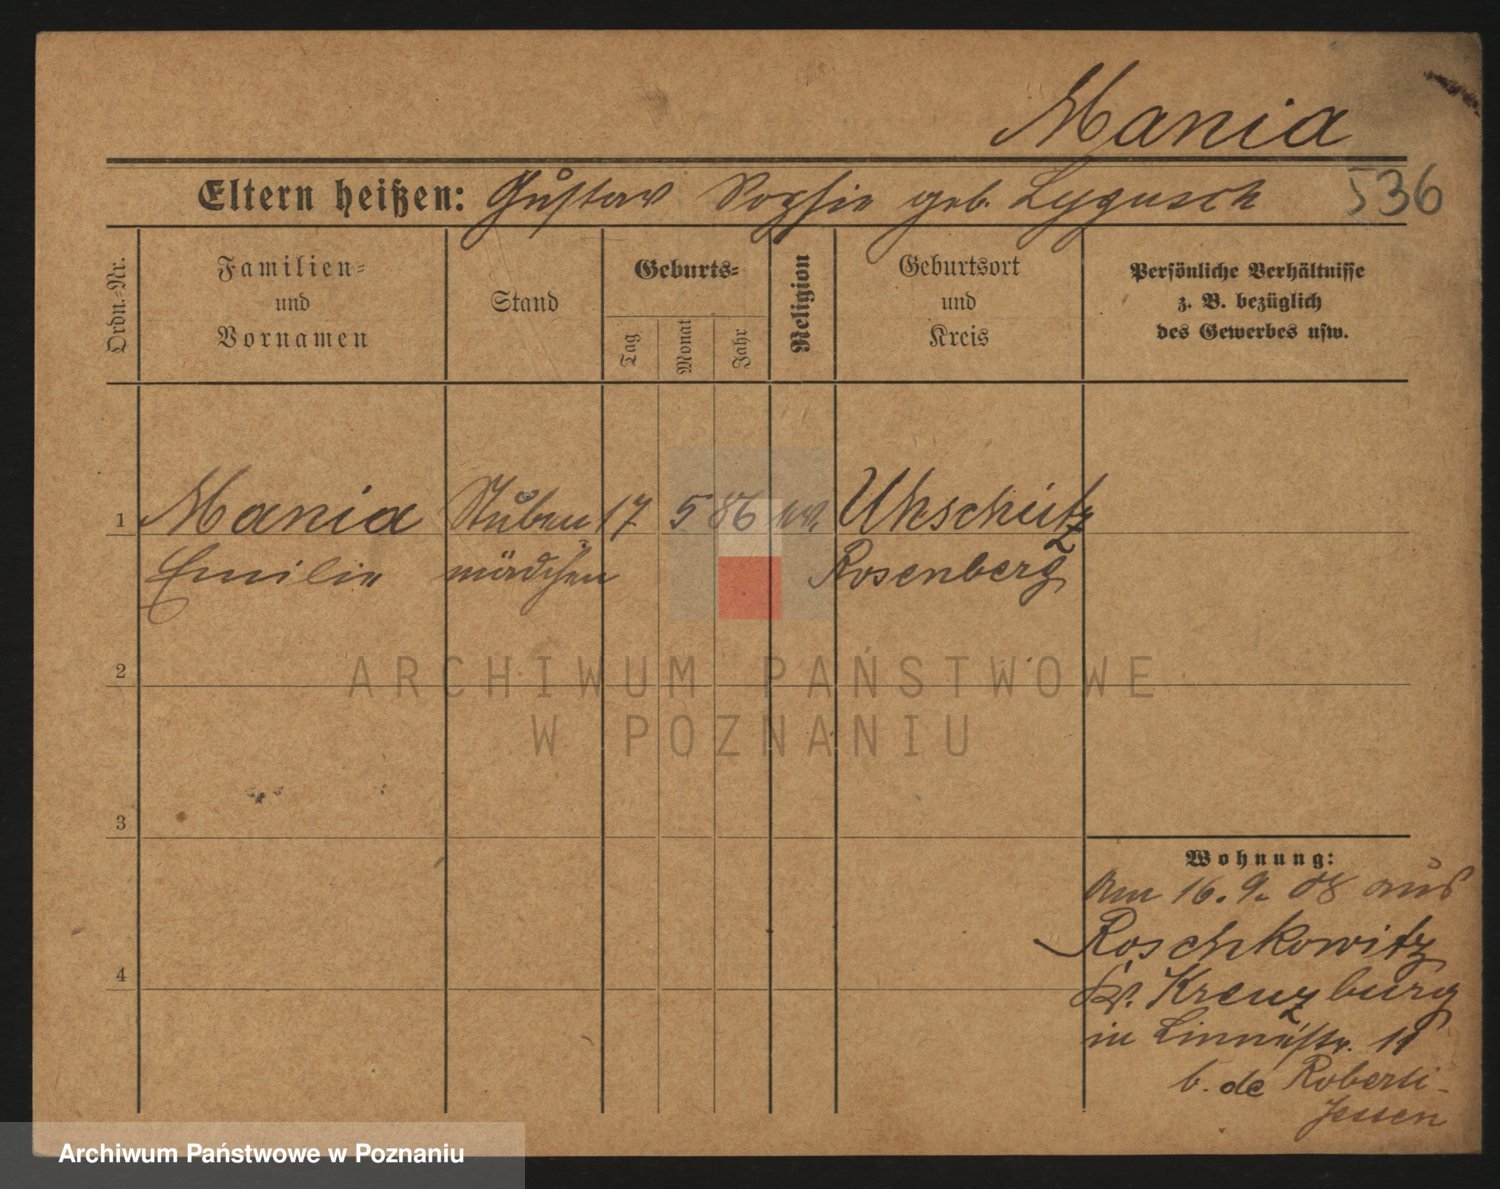 Mania
536
Eltern heißen: Gustav Sophie geb. Lygusch
Ordn.-Nr.
Familien-
und
Vornamen
Stand
Geburts-
Tag
Monat
Jahr
Religion
Geburtsort
und
Kreis
Persönliche Verhältnisse
z. B. bezüglich
des Gewerbes usw.
1 Mania Stuben 17 5 86 ev. Uhschütz
Emilie mädchen Rosenberg
2
3
4
Wohnung:
Am 16. 9. 08 aus
Roschkowitz
Kr. Kreuzburg
in Linnéstr. 11
b. de Roberti-
Jessen
ARCHIWUM PAŃSTWOWE
W POZNANIU
Archiwum Państwowe w Poznaniu